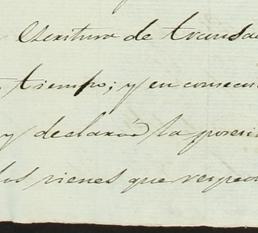 Escritura de transac
tiempo; y en consecu
y declarará la posesi
los vienes que respec